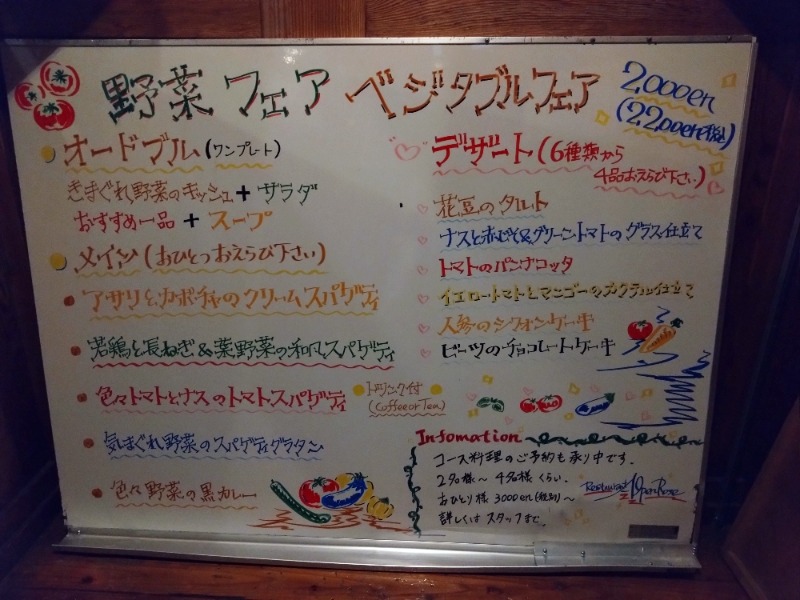 野菜フェア ベジタブルフェア 2,000en
(2200en税込)
オードブル(ワンプレート)
きまぐれ野菜のキッシュ+サラダ
おすすめ一品+スープ
メイン(おひとつおえらび下さい)
アサリとカボチャのクリームスパゲティ
若鶏と長ねぎ&葉野菜の和风スパゲティ
色々トマトとナスのトマトスパゲティ
気まぐれ野菜のスパゲティグラタン
色々野菜の黒カレー
ドリンク付
(Coffee or Tea)
デザート(6種類から
4品おえらび下さい)
花豆のタルト
ナスと赤じそ&グリーントマトのグラス仕立て
トマトのパンナコッタ
イエロートマトとマンゴーのカクテル仕立て
人参のシフォンケーキ
ビーツのチョコレートケーキ
Infomation
コース料理のご予約も承り中です.
2名様〜4名様くらい.
おひとり様 3000en(税別)〜
詳しくはスタッフまで.
Restaurant